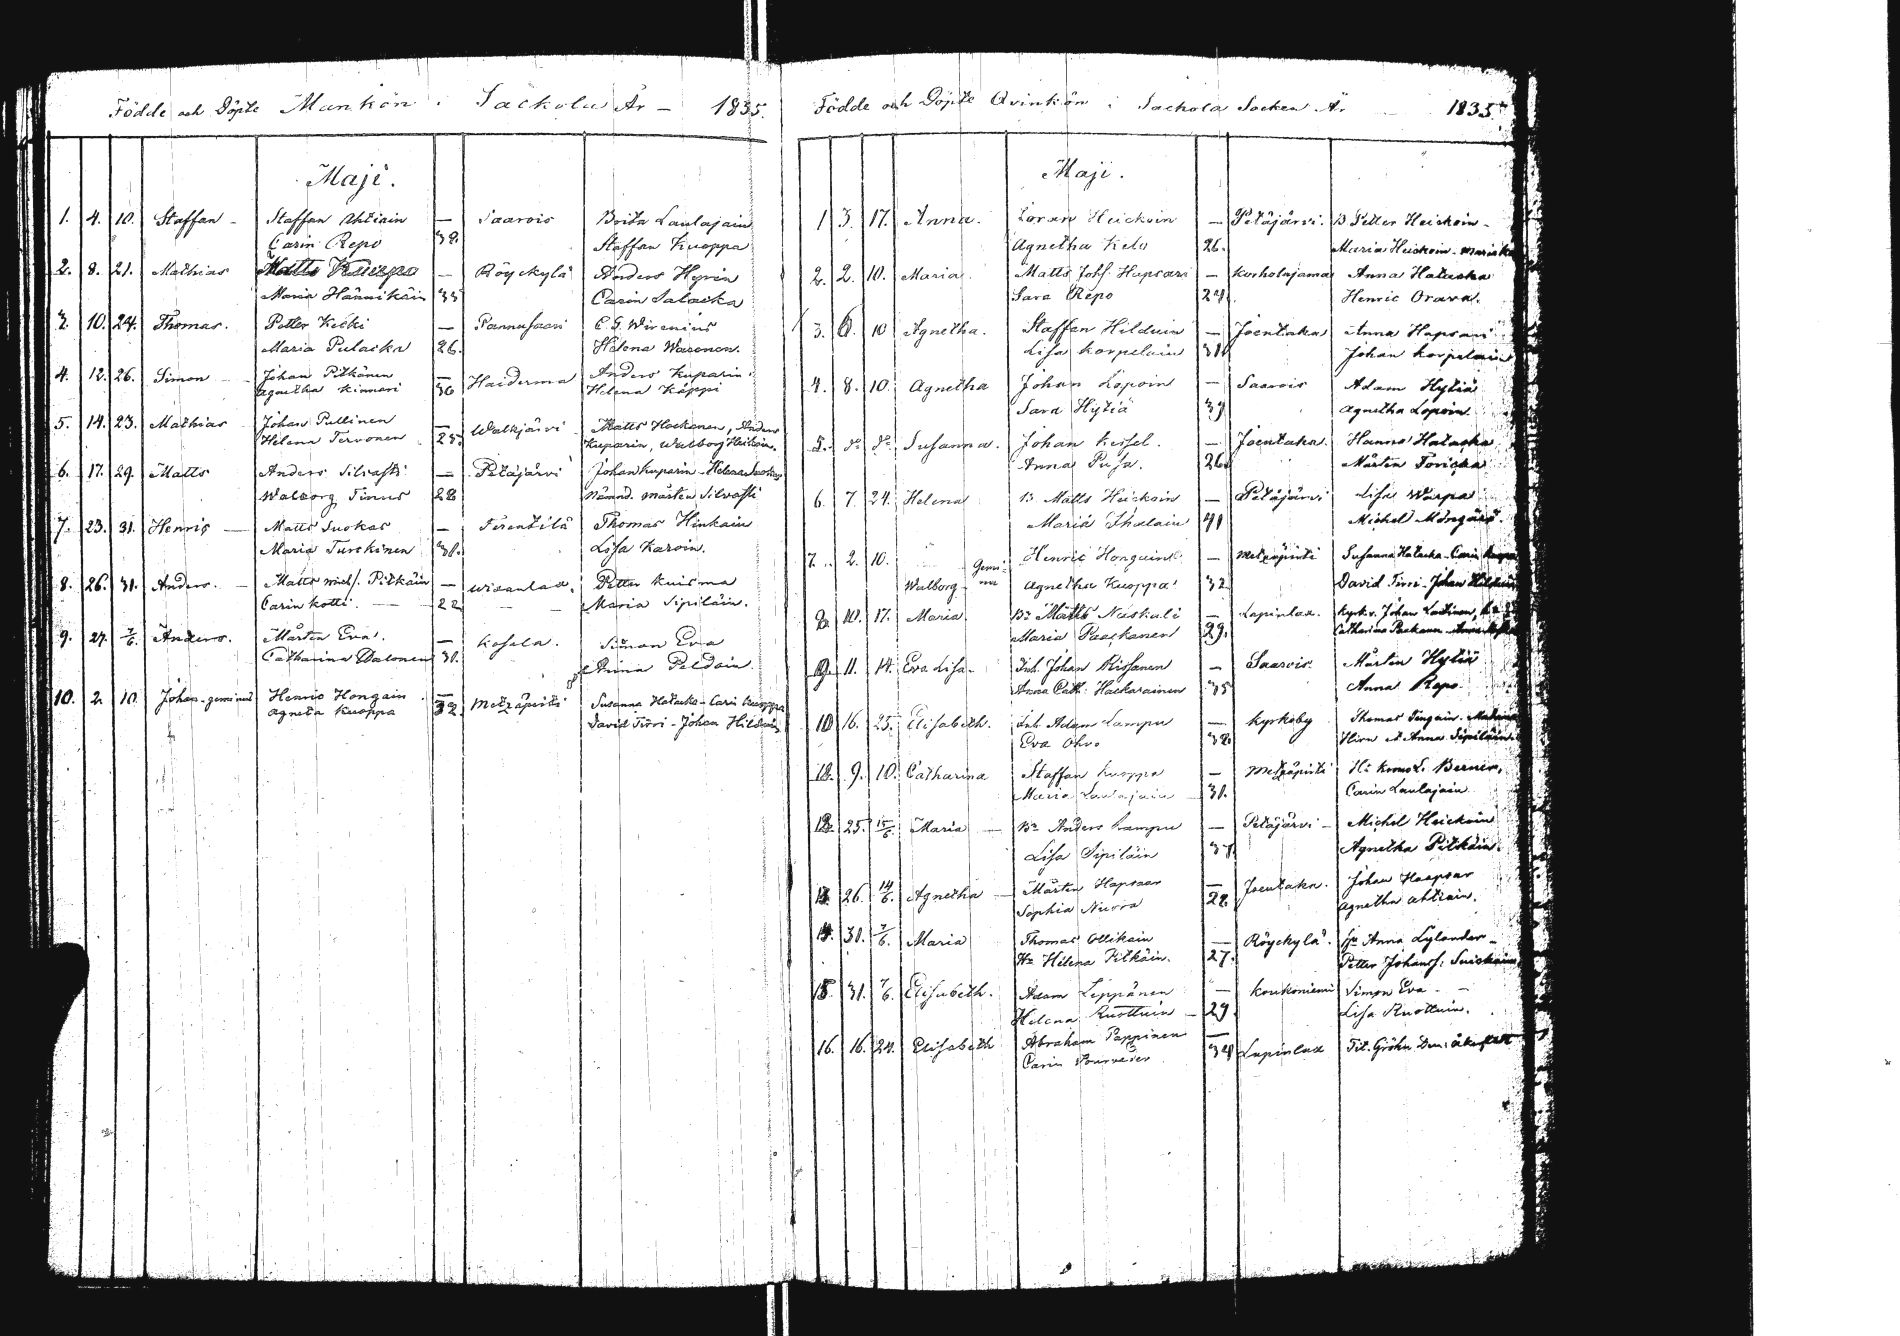 Födde och Döpte Mankön i Sackola År — 1835.
Maji.
1. 4. 10. Staffan – Staffan Ahtiain — Saarois Brita Laulajain
Carin Repo 38. Staffan Kuoppa
2. 8. 21. Mathias Matts Kuisma — Röyckylä Anders Hyvin
Maria Hännikäin 35 Carin Salacka
3. 10. 24. Thomas. Petter Kecki — Pannusaari C. G. Wirenius
Maria Pulacka 26. Helena Waronen.
4. 12. 26. Simon — Johan Pitkänen — Haiderma Anders Kuparin
Agnetha Kinnari 30 Helena Käppi
5. 14. 23. Mathias Johan Pullinen — Walkjärvi Matts Hackanen, Anders
Helena Tervonen 25. Kuparin, Walborg Heikoin.
6. 17. 29. Matts Anders Silvasti — Petäjärvi Johan Kuparin – Helena
Walborg Tinus 28 Nämnd. Mårten Silvasti
7. 23. 31. Henric — Matts Suokas — Ferentilä Thomas Hinkain
Maria Turckinen 31. Lisa Karoin.
8. 26. 31. Anders. — Matts Mich. Pitkäin — Wisanlax. Petter Kuisma
Carin Kotti. — 22 Maria Sipiläin.
9. 27. 7/6. Anders. Mårten Eva. — Kosela. Simon Eva
Catharina Walonen 31. Anna Peldain
10. 2 10 Johan – gemini Henric Hongain — Metzäpirti Susanna Hatacka – Carin Kuoppa
Agneta Kuoppa 32. David Tirri – Johan Hilduin
Födde och Döpte Qvinkön i Sackola Socken År 1835.
Maji.
1 3. 17. Anna. Loran Heickoin — Petäjärvi. B Petter Heickoin –
Agnetha Keto 26. Maria Heickoin
2. 2. 10. Maria. Matts Johs. Hapsari — Korholajama Anna Hatacka
Sara Repo 24. Henric Orava.
3. 6. 10 Agnetha. Staffan Hilduin — Joentaka Anna Hapsari
Lisa Korpelain 31 Johan Korpelain
4. 8. 10. Agnetha Johan Lopoin — Saarois Adam Hytiä
Sara Hytiä 37 Agnetha Lopoin.
5. do do Susanna. Johan Kissel. — Joentaka. Hannes Hatacka
Anna Pusa. 26. Mårten Toricka
6. 7. 24. Helena B. Matts Heickoin — Petäjärvi Lisa Warpa
Maria Ihalain 41 Michel Möngäri.
7. 2. 10. Walborg – Gemini Henric Hongain — Metzäpirti Susanna Hatacka – Carin Kuoppa
Agnetha Kuoppa 32 David Tirri – Johan Hilduin
8. 10. 17. Maria. Bn Matts Naskali — Lapinlax. Kyrkv. Johan Laitinen,
Maria Paackanen 29. Catharina Paakanen –
9. 11. 14. Eva Lisa – Inh. Johan Kissanen — Saarois. Mårten Hytiä
Anna Cath. Hackarainen 35 Anna Repo.
10 16. 25. Elisabeth. Inh. Adam Lampu — Kyrkoby Thomas Tengain.
Eva Ohvo 38. Hirn Anna Sipiläin
12. 9. 10. Catharina Staffan Kuoppa — Metzäpirti Hr Bernér,
Maria Laulajain 31. Carin Laulajain
12. 25. 15/6. Maria — Bn Anders Lampu — Petäjärvi – Michel Heickoin
Lisa Sipiläin 37. Agnetha Pitkäin.
13. 26. 14/6. Agnetha — Mårten Hapsar — Joentaka. Johan Haapsar
Sophia Nurva 22. Agnetha Ahtiain.
14. 30. 7/6. Maria Thomas Ollikain — Röyckylä. Anna Lylander –
Hu Helena Pitkäin. 27. Petter Johans.
15. 31. 7/6. Elisabeth. Adam Leppänen — Koukoniemi Simon Eva –
Helena Ruottuin — 29. Lisa Ruottuin.
16. 16. 24. Elisabeth Abraham Pappinen — Lapinlax Tit. Gröhn
Carin 34